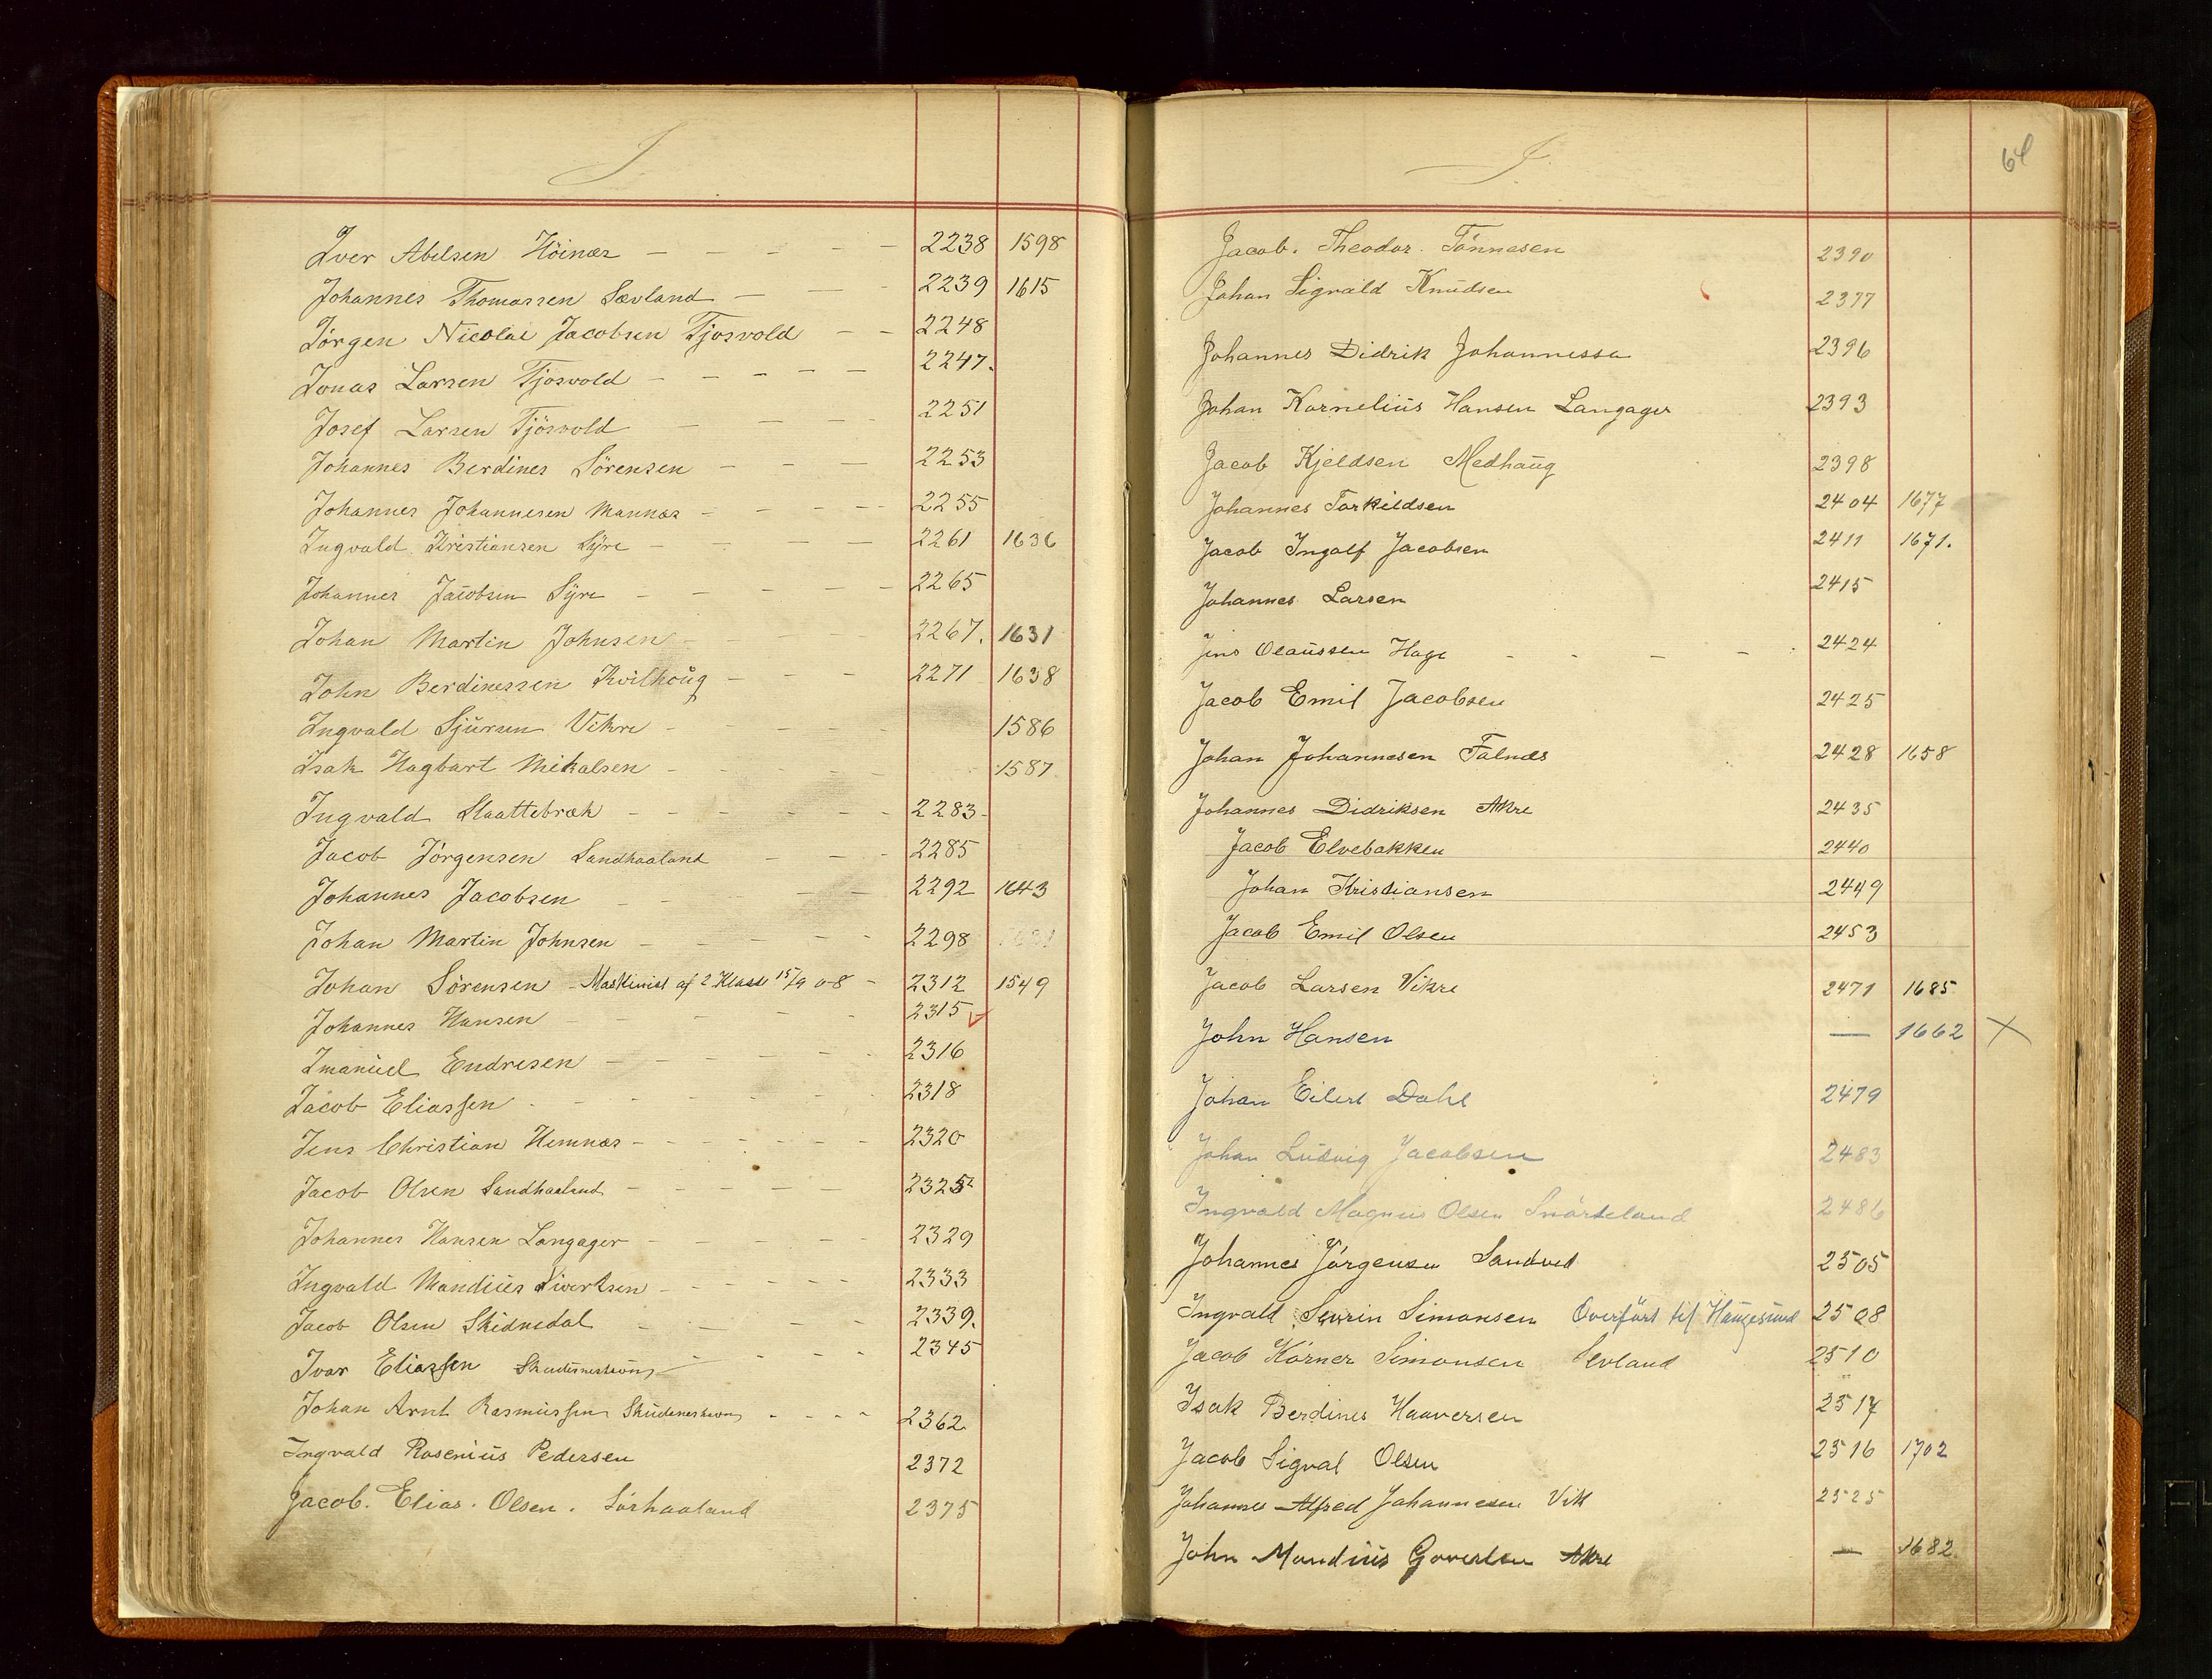 I
Iver Abelsen Höinæs — — — — — 2238 1598
Johannes Thomassen Sævland — — - 2239 1615
Jörgen Nicolai Jacobsen Tjosvold — — 2248
Jonas Larsen Tjosvold — — — — — 2247.
Josef Larsen Tjösvold — — — — 2251
Johannes Berdines Sörensen — — — 2253
Johannes Johannesen Mannæs — — — — 2255
Ingvald Kristiansen Syre — — — — 2261 1636
Johannes Jacobsen Syre — — — — — 2265
Johan Martin Johnsen — — 2267. 1631
John Berdinessen Kvilhoug — — — 2271 1638
Ingvald Sjursen Vikre — — — — 1586
Isak Hagbart Mikalsen — — — 1587
Ingvald Slaattebræk — — — — — — 2283-
Jacob Jörgensen Sandhaaland — — — 2285
Johannes Jacobsen — — — — 2292 1643
Johan Martin Johnsen — — — — — 2298
Johan Sörensen - Maskinist af 2 Klasse 15/9 08 - 2312 1549
Johannes Hansen — — — — — 2315 v
Imanuel Endresen — — — — — 2316
Jacob Eliassen - - - - - - 2318
Jens Christian Hemnæs - - - - - - 2320
Jacob Olsen Sandhaaland — — — — — 2325
Johannes Hansen Langager — — — — — 2329
Ingvald Mandius Sivertsen — — — — — 2333
Jacob Olsen Skidnedal — — — — 2339.
Ivar Eliassen Skudeneshavn — — — — 2345
Johan Arnt Rasmussen Skudeneshavn - - - - 2362
Ingvald Rosenius Pedersen 2372
Jacob. Elias. Olsen. Sörhaaland 2375
I.
64
Jacob. Theodor. Tönnesen 2390
Johan Sigvald Knudsen 2377
Johannes Didrik Johannessen 2396
Johan Kornelius Hansen Langager 2393
Jacob Kjeldsen Medhaug 2398
Johannes Torkildsen 2404 1677
Jacob Ingolf Jacobsen 2411 1671.
Johannes Larsen 2415
Jens Olaussen Hage - - - - - 2424
Jacob Emil Jacobsen 2425
Johan Johannesen Falnæs 2428 1658
Johannes Didriksen Akre 2435
Jacob Elvebakken 2440
Johan Kristiansen 2449
Jacob Emil Olsen 2453
Jacob Larsen Vikre 2471 1685
John Hansen — 1662 X
Johan Eilert Dahl 2479
Johan Ludvig Jacobsen 2483
Ingvald Magnus Olsen Snörteland 2486
Johannes Jörgensen Sandved 2505
Ingvald Severin Simonsen Overfört til Haugesund 2508
Jacob Körner Simonsen Sevland 2510
Isak Berdines Haaversen 2517
Jacob Sigval Olsen 2516 1702
Johannes Alfred Johannesen Vik 2525
John Mandius Goverten Akre — 1682